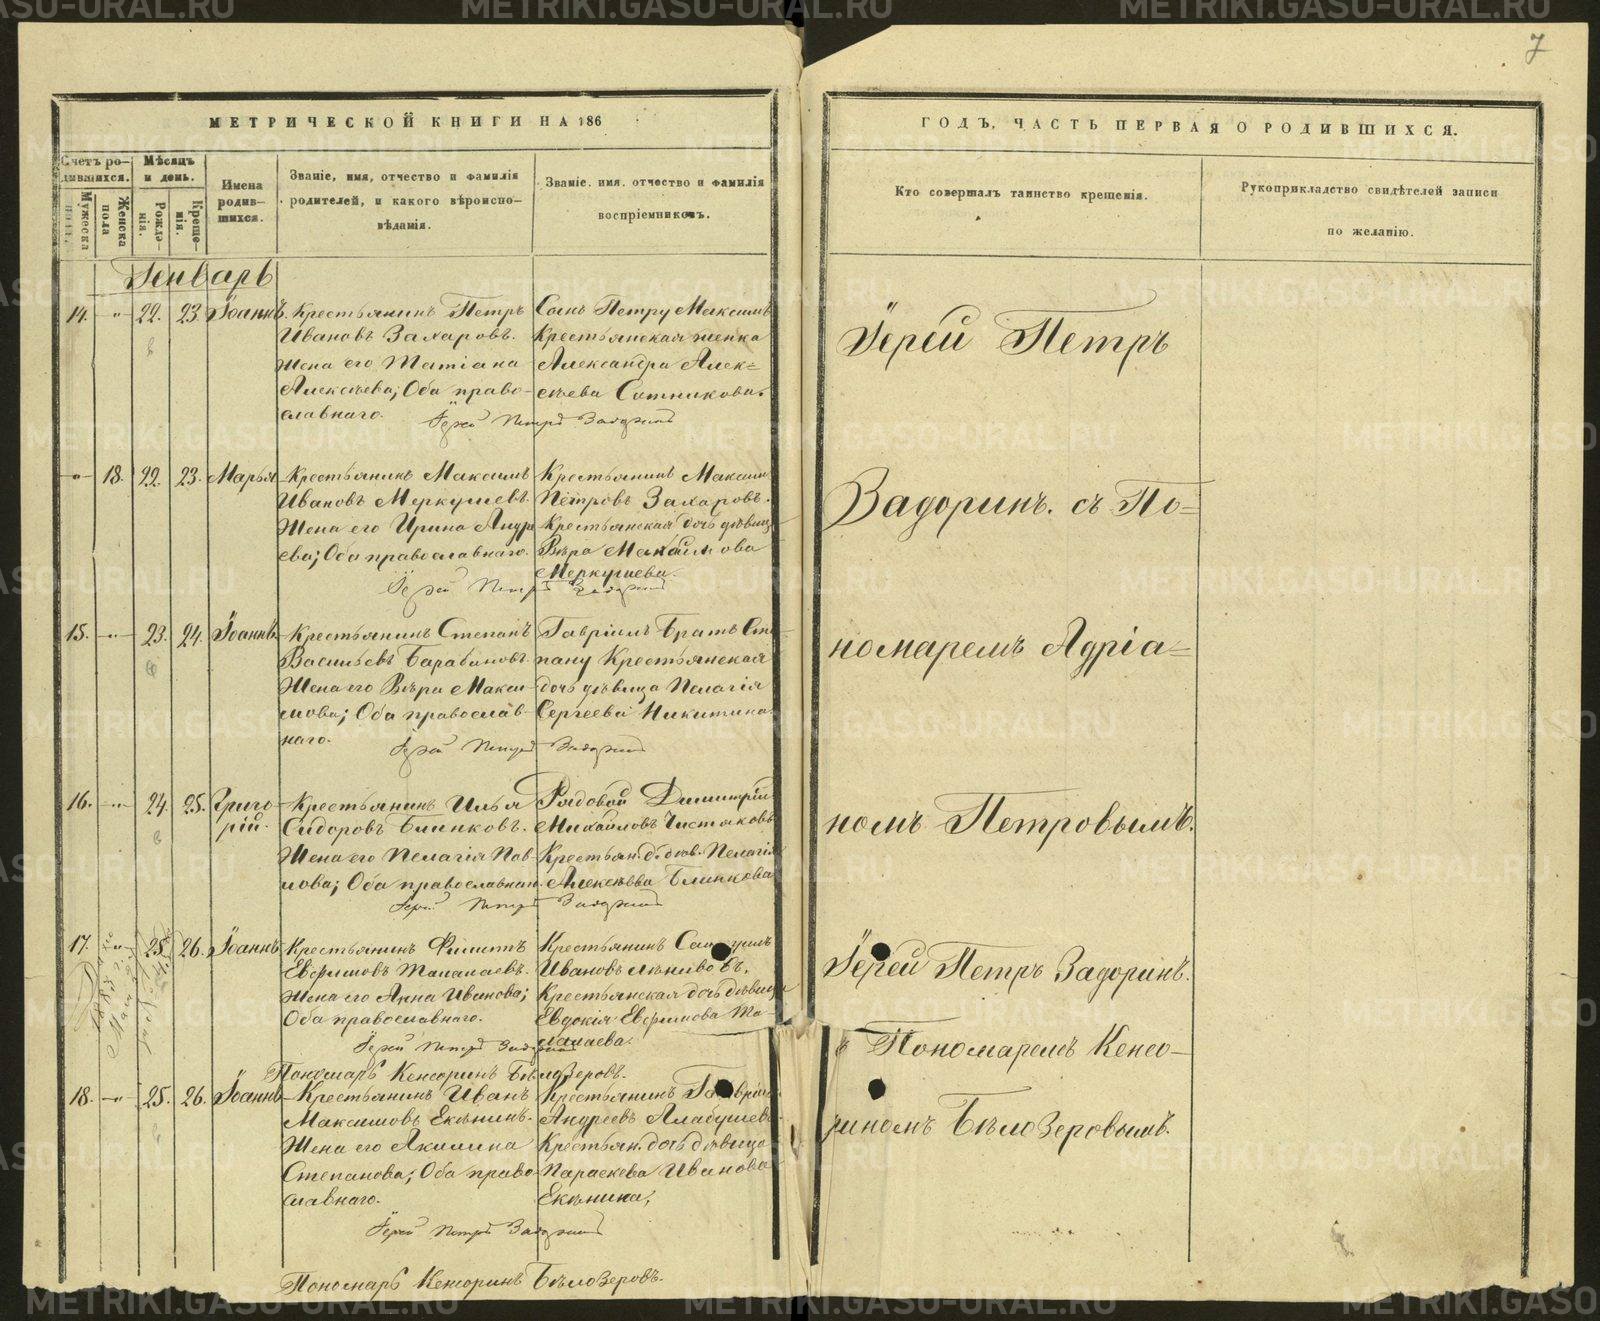 7
МЕТРИЧЕСКОЙ КНИГИ НА 186
ГОДЪ, ЧАСТЬ ПЕРВАЯ О РОДИВШИХСЯ.
Счетъ ро-
дившихся.
Мужеска
пола.
Женска
пола
Мѣсяцъ
и день.
Рожде-
нія.
Креще-
нія.
Имена
родив-
шихся.
Званіе, имя, отчество и фамилія
родителей, и какого вѣроиспо-
вѣданія.
Званіе. имя. отчество и фамилія
воспріемниковъ.
Кто совершалъ таинство крещенія.
Рукоприкладство свидѣтелей записи
по желанію.
Генварь
14. " 22. 23. Іоаннъ.
Крестьянинъ Петръ
Ивановъ Захаровъ.
Жена его Татіана
Алексѣева; Оба право-
славнаго.
Сынъ Петру Максимъ
Крестьянская женка
Александра Алек=
сѣева Сотникова.
Іерей Петръ Задоринъ
" 18. 22. 23. Марья
Крестьянинъ Максимъ
Ивановъ Меркушевъ.
Жена его Ирина Андре
ева; Оба православнаго.
Крестьянинъ Максим
Петровъ Захаровъ.
Крестьянская дочь дѣвица
Вѣра Максимова
Меркушева.
Іерей Петръ Задоринъ
15. " 23. 24. Іоаннъ.
Крестьянинъ Степанъ
Васильевъ Барабановъ.
Жена его Вѣра Макси-
мова; Оба православ-
наго.
Гавріилъ Братъ Сте
пану Крестьянская
дочь дѣвица Пелагія
Сергеева Никитина.
Іерей Петръ Задоринъ
16. " 24. 25. Григо
рій.
Крестьянинъ Илья
Сидоровъ Блинковъ.
Жена его Пелагія Пав-
лова; Оба православнаго.
Рядовой Димитрій
Михайловъ Чистяковъ
Крестьян. д. дѣв. Пелагія
Алексѣева Блинкова
Іерей Петръ Задоринъ
17. " 25. 26. Іоаннъ
Крестьянинъ Филиппъ
Евфимовъ Талалаевъ.
Жена его Анна Иванова;
Оба православнаго.
Крестьянинъ Самуилъ
Ивановъ Лѣнивовъ.
Крестьянская дочь дѣвица
Евдокія Евфимова Та-
лалаева.
Іерей Петръ Задоринъ
Пономарь Кенсоринъ Бѣлозеровъ.
18. " 25. 26. Іоаннъ
Крестьянинъ Иванъ
Максимовъ Екѣнинъ.
Жена его Акилина
Степанова; Оба право
славнаго.
Крестьянинъ Гавріил
Андреевъ Алабушевъ.
Крестьян. дочь дѣвица
Параскева Иванова
Екѣнина,
Іерей Петръ Задоринъ
Пономарь Кенсоринъ Бѣлозеровъ.
Іерей Петръ
Задоринъ. съ По=
номаремъ Адріа=
номъ Петровымъ.
Іерей Петръ Задоринъ.
Пономаремъ Кенсо-
риномъ Бѣлозеровымъ.
METRIKI.GASU-URAL.RU